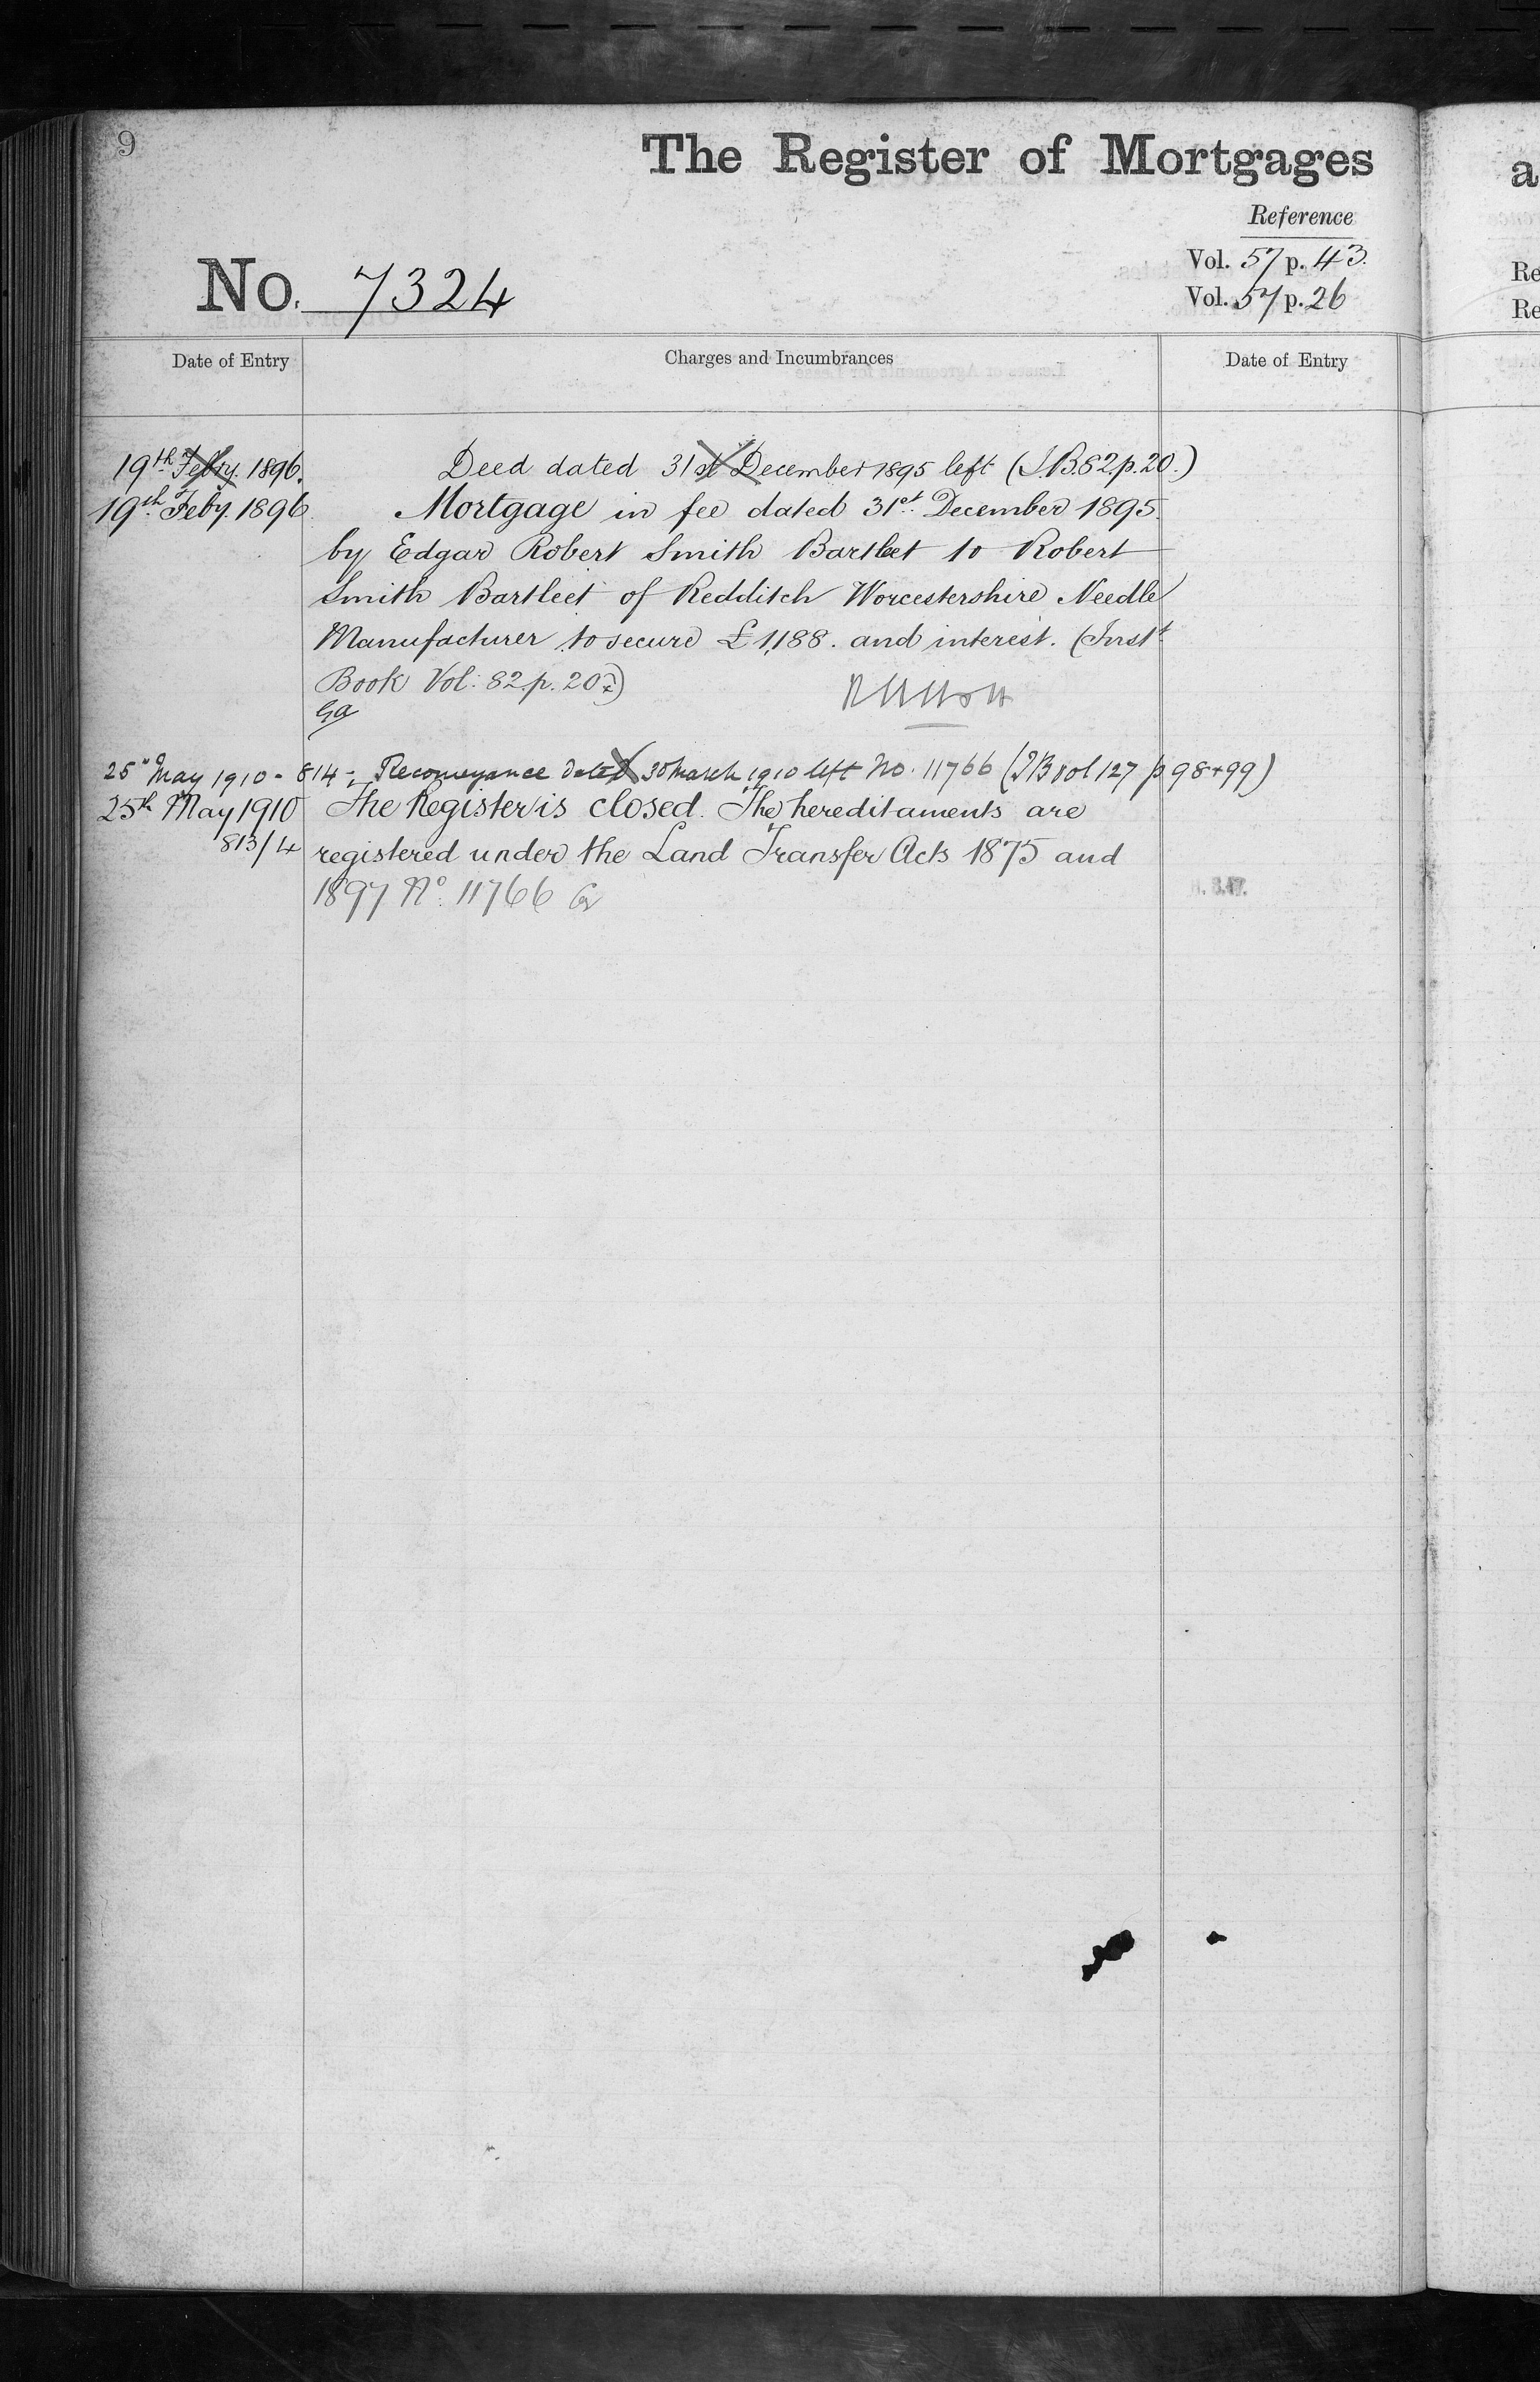 9
The Register of Mortgages
Reference
Vol. 57 p. 43.
No. 7324
Vol. 57 p. 26
Date of Entry
Charges and Incumbrances
Date of Entry
19th Feby. 1896. Deed dated 31st December 1895 left (I.B.82.p.20.)
19th Feby. 1896 Mortgage in fee dated 31st December 1895
by Edgar Robert Smith Bartleet to Robert
Smith Bartleet of Redditch Worcestershire Needle
Manufacturer to secure £1,188. and interest. (Instt
Book Vol: 82.p. 20.)
25" May 1910 - 814 - Reconveyance dated 30 March 1910 left No. 11766 (IB Vol 127 p 98+99)
25th May 1910 The Register is closed. The hereditaments are
813/4 registered under the Land Transfer Acts 1875 and
1897 No. 11766
a
Re
Re